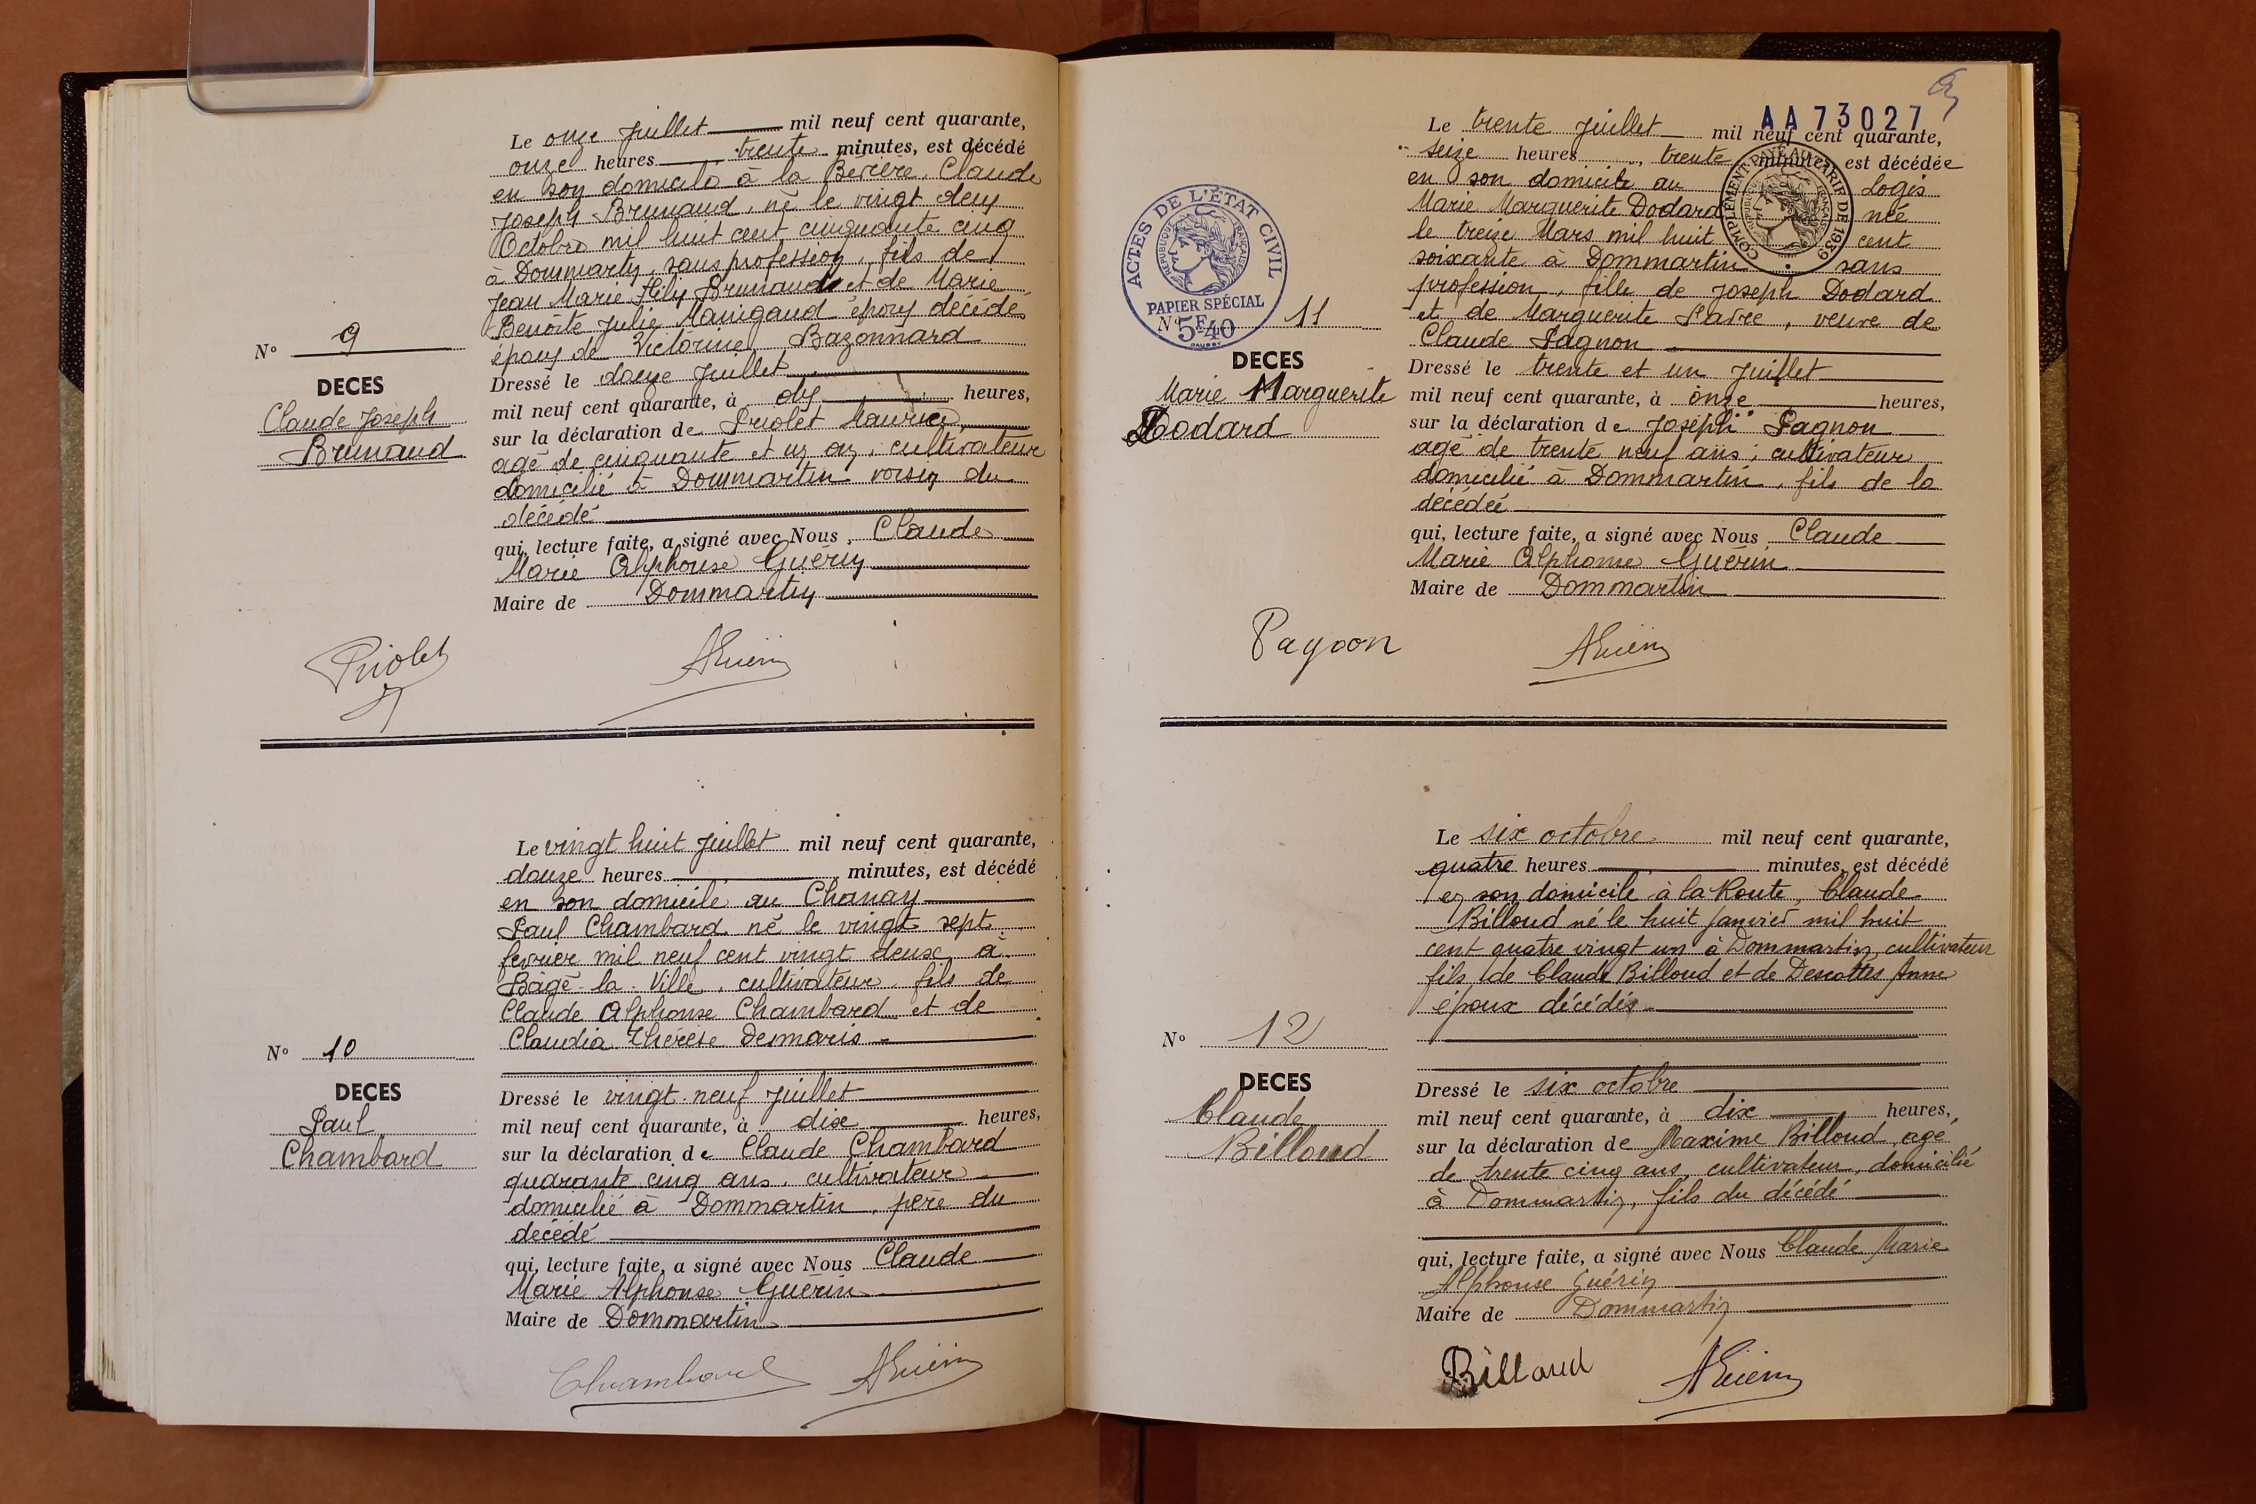 Le onze Juillet mil neuf cent quarante,
onze heures trente minutes, est décédé
en son domicile à la Claude
Joseph Brunaud, né le vingt deux
Octobre mil huit cent cinquante cinq
à Dommartin, sans profession, fils de
Jean Marie Brunaud et de Marie
Benoîte Julie époux décédés
époux de Victorine Bazonnard
N° 9
DECES
Claude Joseph
Brunaud
Dressé le douze Juillet
mil neuf cent quarante, à dix heures,
sur la déclaration de Priolet Maurice,
agé de cinquante et un an, cultivateur
domicilié à Dommartin voisin du
décédé
qui, lecture faite, a signé avec Nous, Claude
Marie Alphonse Guérin
Maire de Dommartin
Priolet
AGuérin
Le vingt huit Juillet mil neuf cent quarante,
douze heures minutes, est décédé
en son domicile au Chanay
Paul Chambard né le vingt sept
février mil neuf cent vingt deux à
Bâgé-la-Ville, cultivateur, fils de
Claude Alphonse Chambard et de
Claudia Thérèse Desmaris
N° 10
DECES
Paul
Chambard
Dressé le vingt-neuf Juillet
mil neuf cent quarante, à dix heures,
sur la déclaration de Claude Chambard
quarante cinq ans, cultivateur
domicilié à Dommartin, père du
décédé
qui, lecture faite, a signé avec Nous Claude
Marie Alphonse Guérin
Maire de Dommartin
Chambard
AGuérin
AA73027
Le trente Juillet mil neuf cent quarante,
seize heures, trente minutes est décédée
en son domicile au Logis
Marie Marguerite Dodard née
le treize Mars mil huit cent
soixante à Dommartin sans
profession, fille de Joseph Dodard
et de Marguerite Favre, veuve de
Claude Pagnon
COMPLEMENT PAYÉ AU TARIF DE 1939
ACTES DE L'ÉTAT CIVIL
REPUBLIQUE FRANÇAISE
PAPIER SPÉCIAL
5F.40
N° 11
DECES
Marie Marguerite
Dodard
Dressé le trente et un Juillet
mil neuf cent quarante, à onze heures,
sur la déclaration de Joseph Pagnon
agé de trente neuf ans, cultivateur
domicilié à Dommartin, fils de la
décédée
qui, lecture faite, a signé avec Nous Claude
Marie Alphonse Guérin
Maire de Dommartin
Pagnon
AGuérin
Le six octobre mil neuf cent quarante,
quatre heures minutes, est décédé
en son domicile à la Route, Claude
Billoud né le huit Janvier mil huit
cent quatre vingt un à Dommartin, cultivateur
fils de Claude Billoud et de Descottes Anne
époux décédés
N° 12
DECES
Claude
Billoud
Dressé le six octobre
mil neuf cent quarante, à dix heures,
sur la déclaration de Maxime Billoud, agé
de trente cinq ans, cultivateur, domicilié
à Dommartin, fils du décédé
qui, lecture faite, a signé avec Nous Claude Marie
Alphonse Guérin
Maire de Dommartin
Billoud
AGuérin